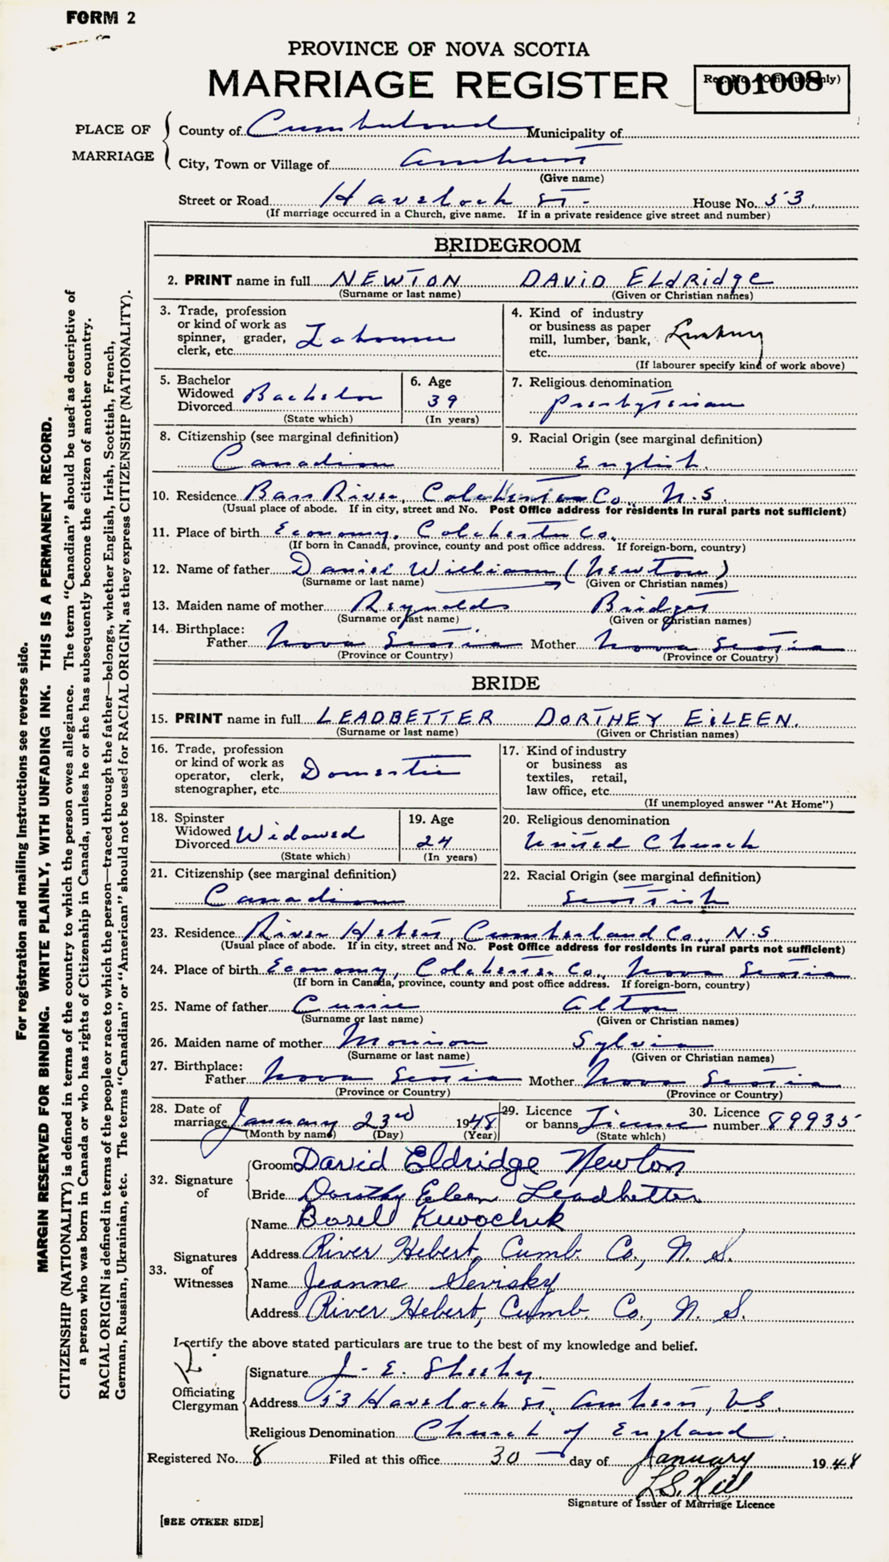 FORM 2
PROVINCE OF NOVA SCOTIA
MARRIAGE REGISTER
Reg. No. (Office use only)
001008
PLACE OF MARRIAGE
County of Cumberland Municipality of
City, Town or Village of Amherst
(Give name)
Street or Road Havelock St. House No. 53
(If marriage occurred in a Church, give name. If in a private residence give street and number)
BRIDEGROOM
2. PRINT name in full NEWTON DAVID ELdRidge
(Surname or last name) (Given or Christian names)
3. Trade, profession or kind of work as spinner, grader, clerk, etc. Labourer
4. Kind of industry or business as paper mill, lumber, bank, etc.
(If labourer specify kind of work above)
5. Bachelor Widowed Divorced Bachelor
(State which)
6. Age 39
(In years)
7. Religious denomination Presbyterian
8. Citizenship (see marginal definition) Canadian
9. Racial Origin (see marginal definition) English
10. Residence Bass River, Colchester Co. N.S.
(Usual place of abode. If in city, street and No. Post Office address for residents in rural parts not sufficient)
11. Place of birth Economy, Colchester Co.
(If born in Canada, province, county and post office address. If foreign-born, country)
12. Name of father Daniel William (Newton)
(Surname or last name) (Given or Christian names)
13. Maiden name of mother Reynolds Bridget
(Surname or last name) (Given or Christian names)
14. Birthplace: Father Nova Scotia Mother Nova Scotia
(Province or Country) (Province or Country)
BRIDE
15. PRINT name in full LEADBETTER DORTHEY EiLEEN.
(Surname or last name) (Given or Christian names)
16. Trade, profession or kind of work as operator, clerk, stenographer, etc. Domestic
17. Kind of industry or business as textiles, retail, law office, etc.
(If unemployed answer "At Home")
18. Spinster Widowed Divorced Widowed
(State which)
19. Age 24
(In years)
20. Religious denomination United Church
21. Citizenship (see marginal definition) Canadian
22. Racial Origin (see marginal definition) Scottish
23. Residence River Hebert, Cumberland Co., N.S.
(Usual place of abode. If in city, street and No. Post Office address for residents in rural parts not sufficient)
24. Place of birth Economy, Colchester Co., Nova Scotia
(If born in Canada, province, county and post office address. If foreign-born, country)
25. Name of father Currie Alton
(Surname or last name) (Given or Christian names)
26. Maiden name of mother Morrison Sylvia
(Surname or last name) (Given or Christian names)
27. Birthplace: Father Nova Scotia Mother Nova Scotia
(Province or Country) (Province or Country)
28. Date of marriage January 23rd 1948
(Month by name) (Day) (Year)
29. Licence or banns License
(State which)
30. Licence number 89935
32. Signature of
Groom David Eldridge Newton
Bride Dorothy Eileen Leadbetter
33. Signatures of Witnesses
Name Basell Kuvochuk
Address River Hebert, Cumb. Co., N. S.
Name Jeanne
Address River Hebert, Cumb. Co., N. S.
I certify the above stated particulars are true to the best of my knowledge and belief.
Officiating Clergyman
Signature J. E. Sheehy.
Address 53 Havelock St. Amherst, N.S.
Religious Denomination Church of England.
Registered No. 8 Filed at this office 30 day of January 1948
L.S. Hill
Signature of Issuer of Marriage Licence
[SEE OTHER SIDE]
For registration and mailing instructions see reverse side.
MARGIN RESERVED FOR BINDING. WRITE PLAINLY, WITH UNFADING INK. THIS IS A PERMANENT RECORD.
CITIZENSHIP (NATIONALITY) is defined in terms of the country to which the person owes allegiance. The term "Canadian" should be used as descriptive of
a person who was born in Canada or who has rights of Citizenship in Canada, unless he or she has subsequently become the citizen of another country.
RACIAL ORIGIN is defined in terms of the people or race to which the person—traced through the father—belongs, whether English, Irish, Scottish, French,
German, Russian, Ukrainian, etc. The terms "Canadian" or "American" should not be used for RACIAL ORIGIN, as they express CITIZENSHIP (NATIONALITY).